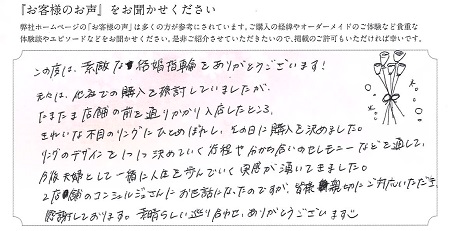 『お客様のお声』をお聞かせください
弊社ホームページの「お客様のお声」は多くの方が参考にされています。ご購入の経緯やオーダーメイドのご体験など貴重な
体験談やエピソードなどをお聞かせください。是非ご紹介させていただきたいので、掲載のご許可もいただければ幸いです。
この度は、素敵な結婚指輪をありがとうございます!
元々は、他社での購入を検討していましたが、
たまたま店舗の前を通りかかり入店したところ、
きれいな木目のリングにひとめぼれし、その日に購入を決めました。
リングのデザインを1つ1つ決めていく過程や分かち合いのセレモニーなどを通して、
今後夫婦として一緒に人生を歩んでいく実感が湧いてきました。
2店舗のコンシェルジュさんにお世話になったのですが、皆様親切にご対応いただき、
感謝しております。素晴らしい巡り合わせ、ありがとうございます